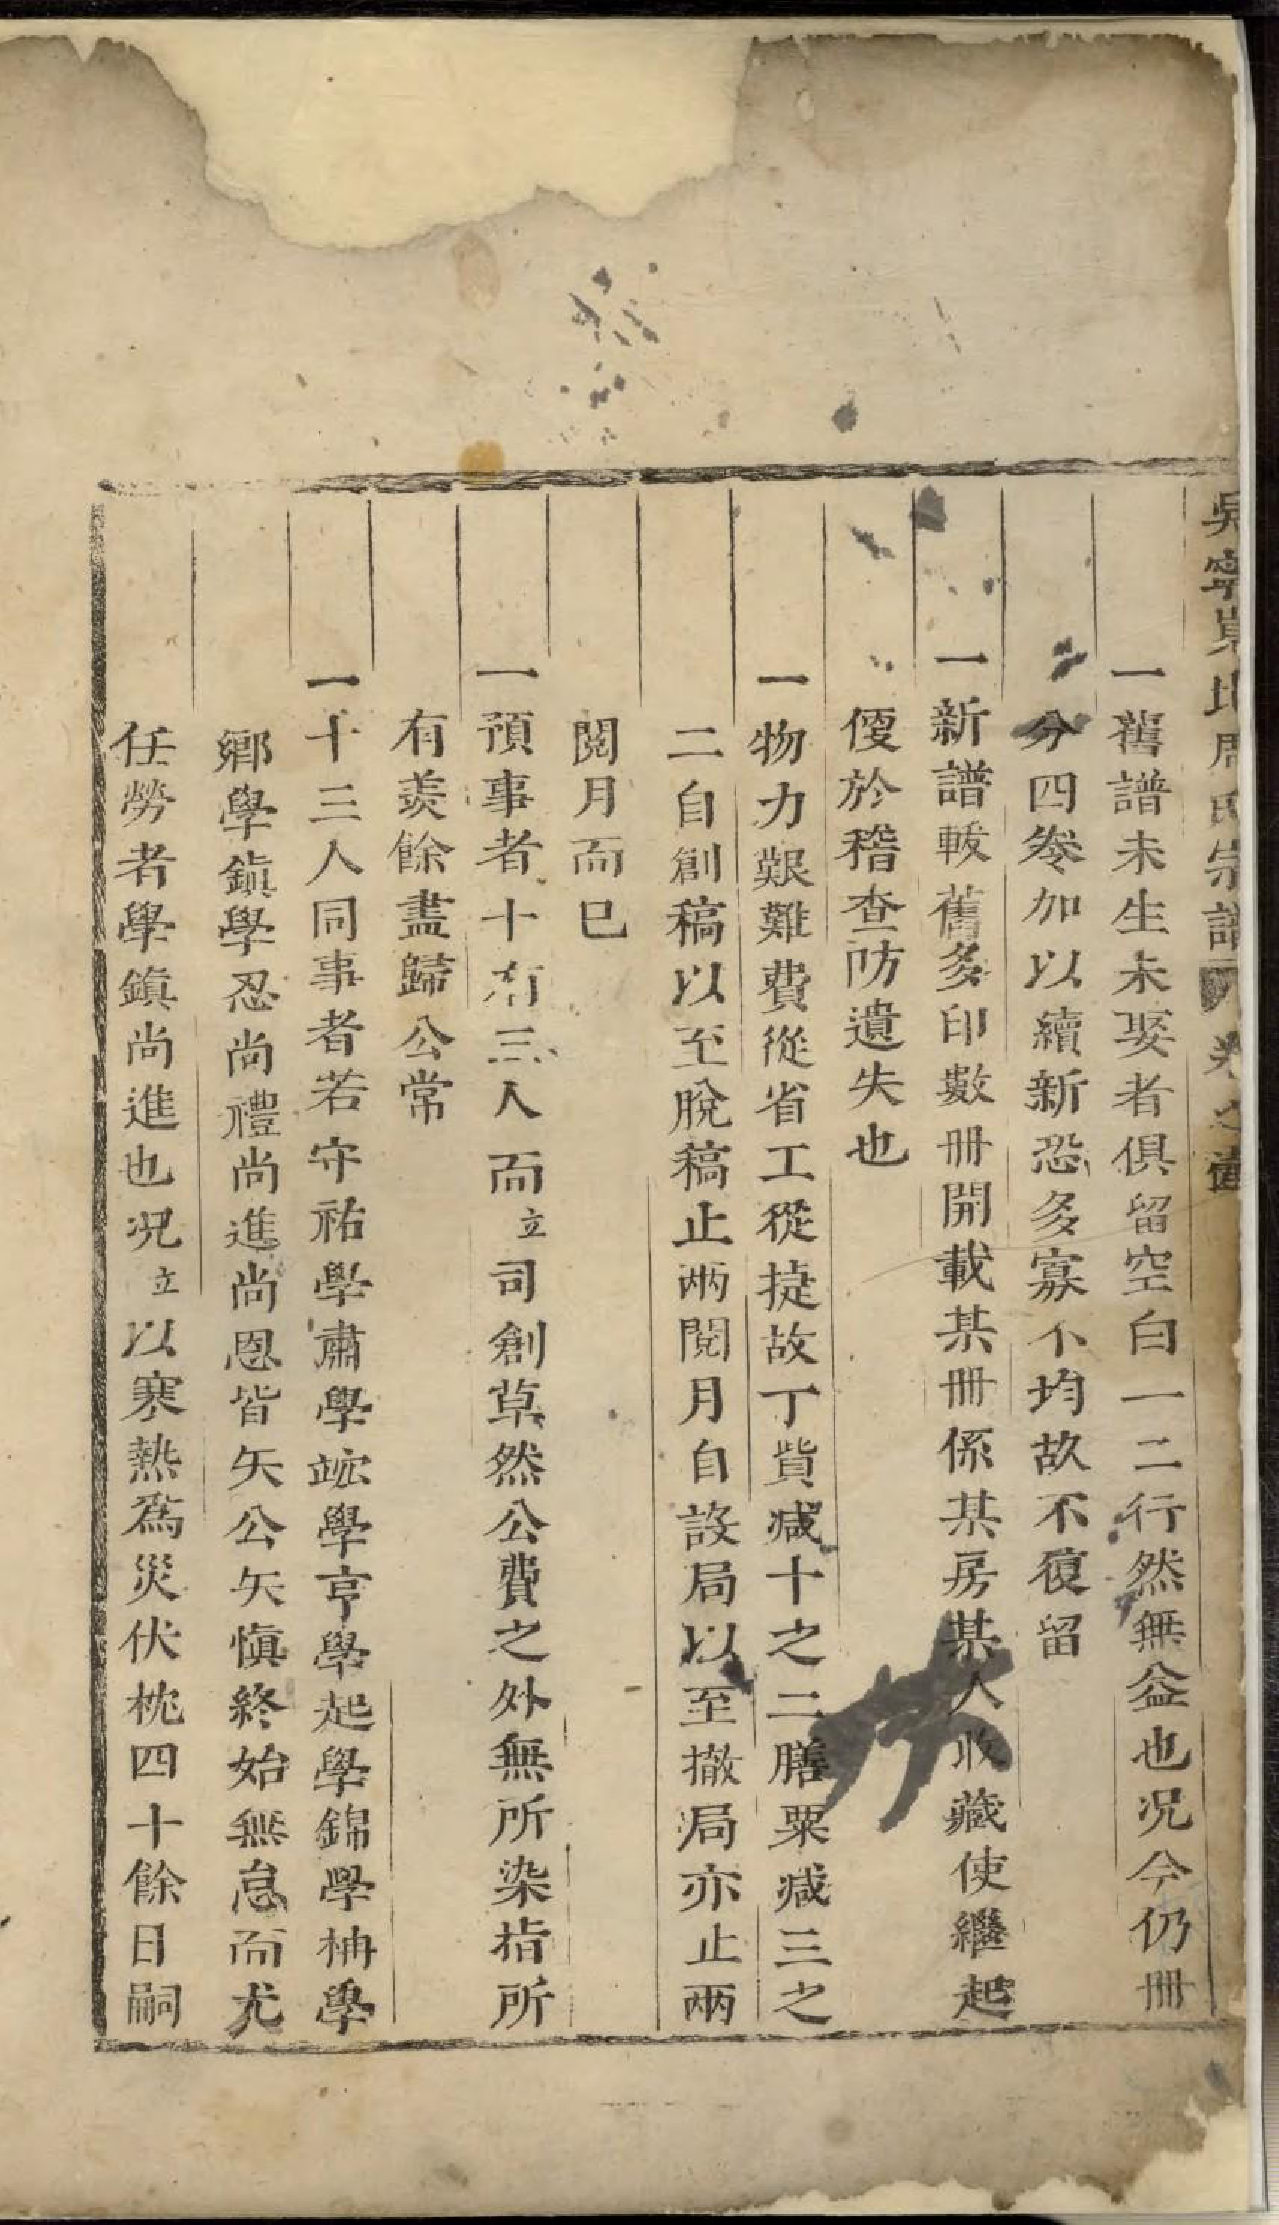 吳寧 周氏宗譜 卷之壹
一舊譜未生未娶者俱留空白一二行然無益也况今仍冊
分四卷加以續新恐多寡不均故不復留
一新譜較舊多印數冊開載某冊係某房某人收藏使繼起
便於稽查防遺失也
一物力艱難費從省工從捷故丁貲减十之二膳粟减三之
二自創稿以至脫稿止兩閱月自設局以至撤局亦止兩
閱月而已
一預事者十有三人而立司創草然公費之外無所染指所
有羨餘盡歸公常
一十三人同事者若守祐學肅學竤學亨學起學錦學柟學
鄉學鎮學忍尚禮尚進尚恩皆矢公矢慎終始無怠而尤
任勞者學鎮尚進也况立以寒熱為災伏枕四十餘日嗣